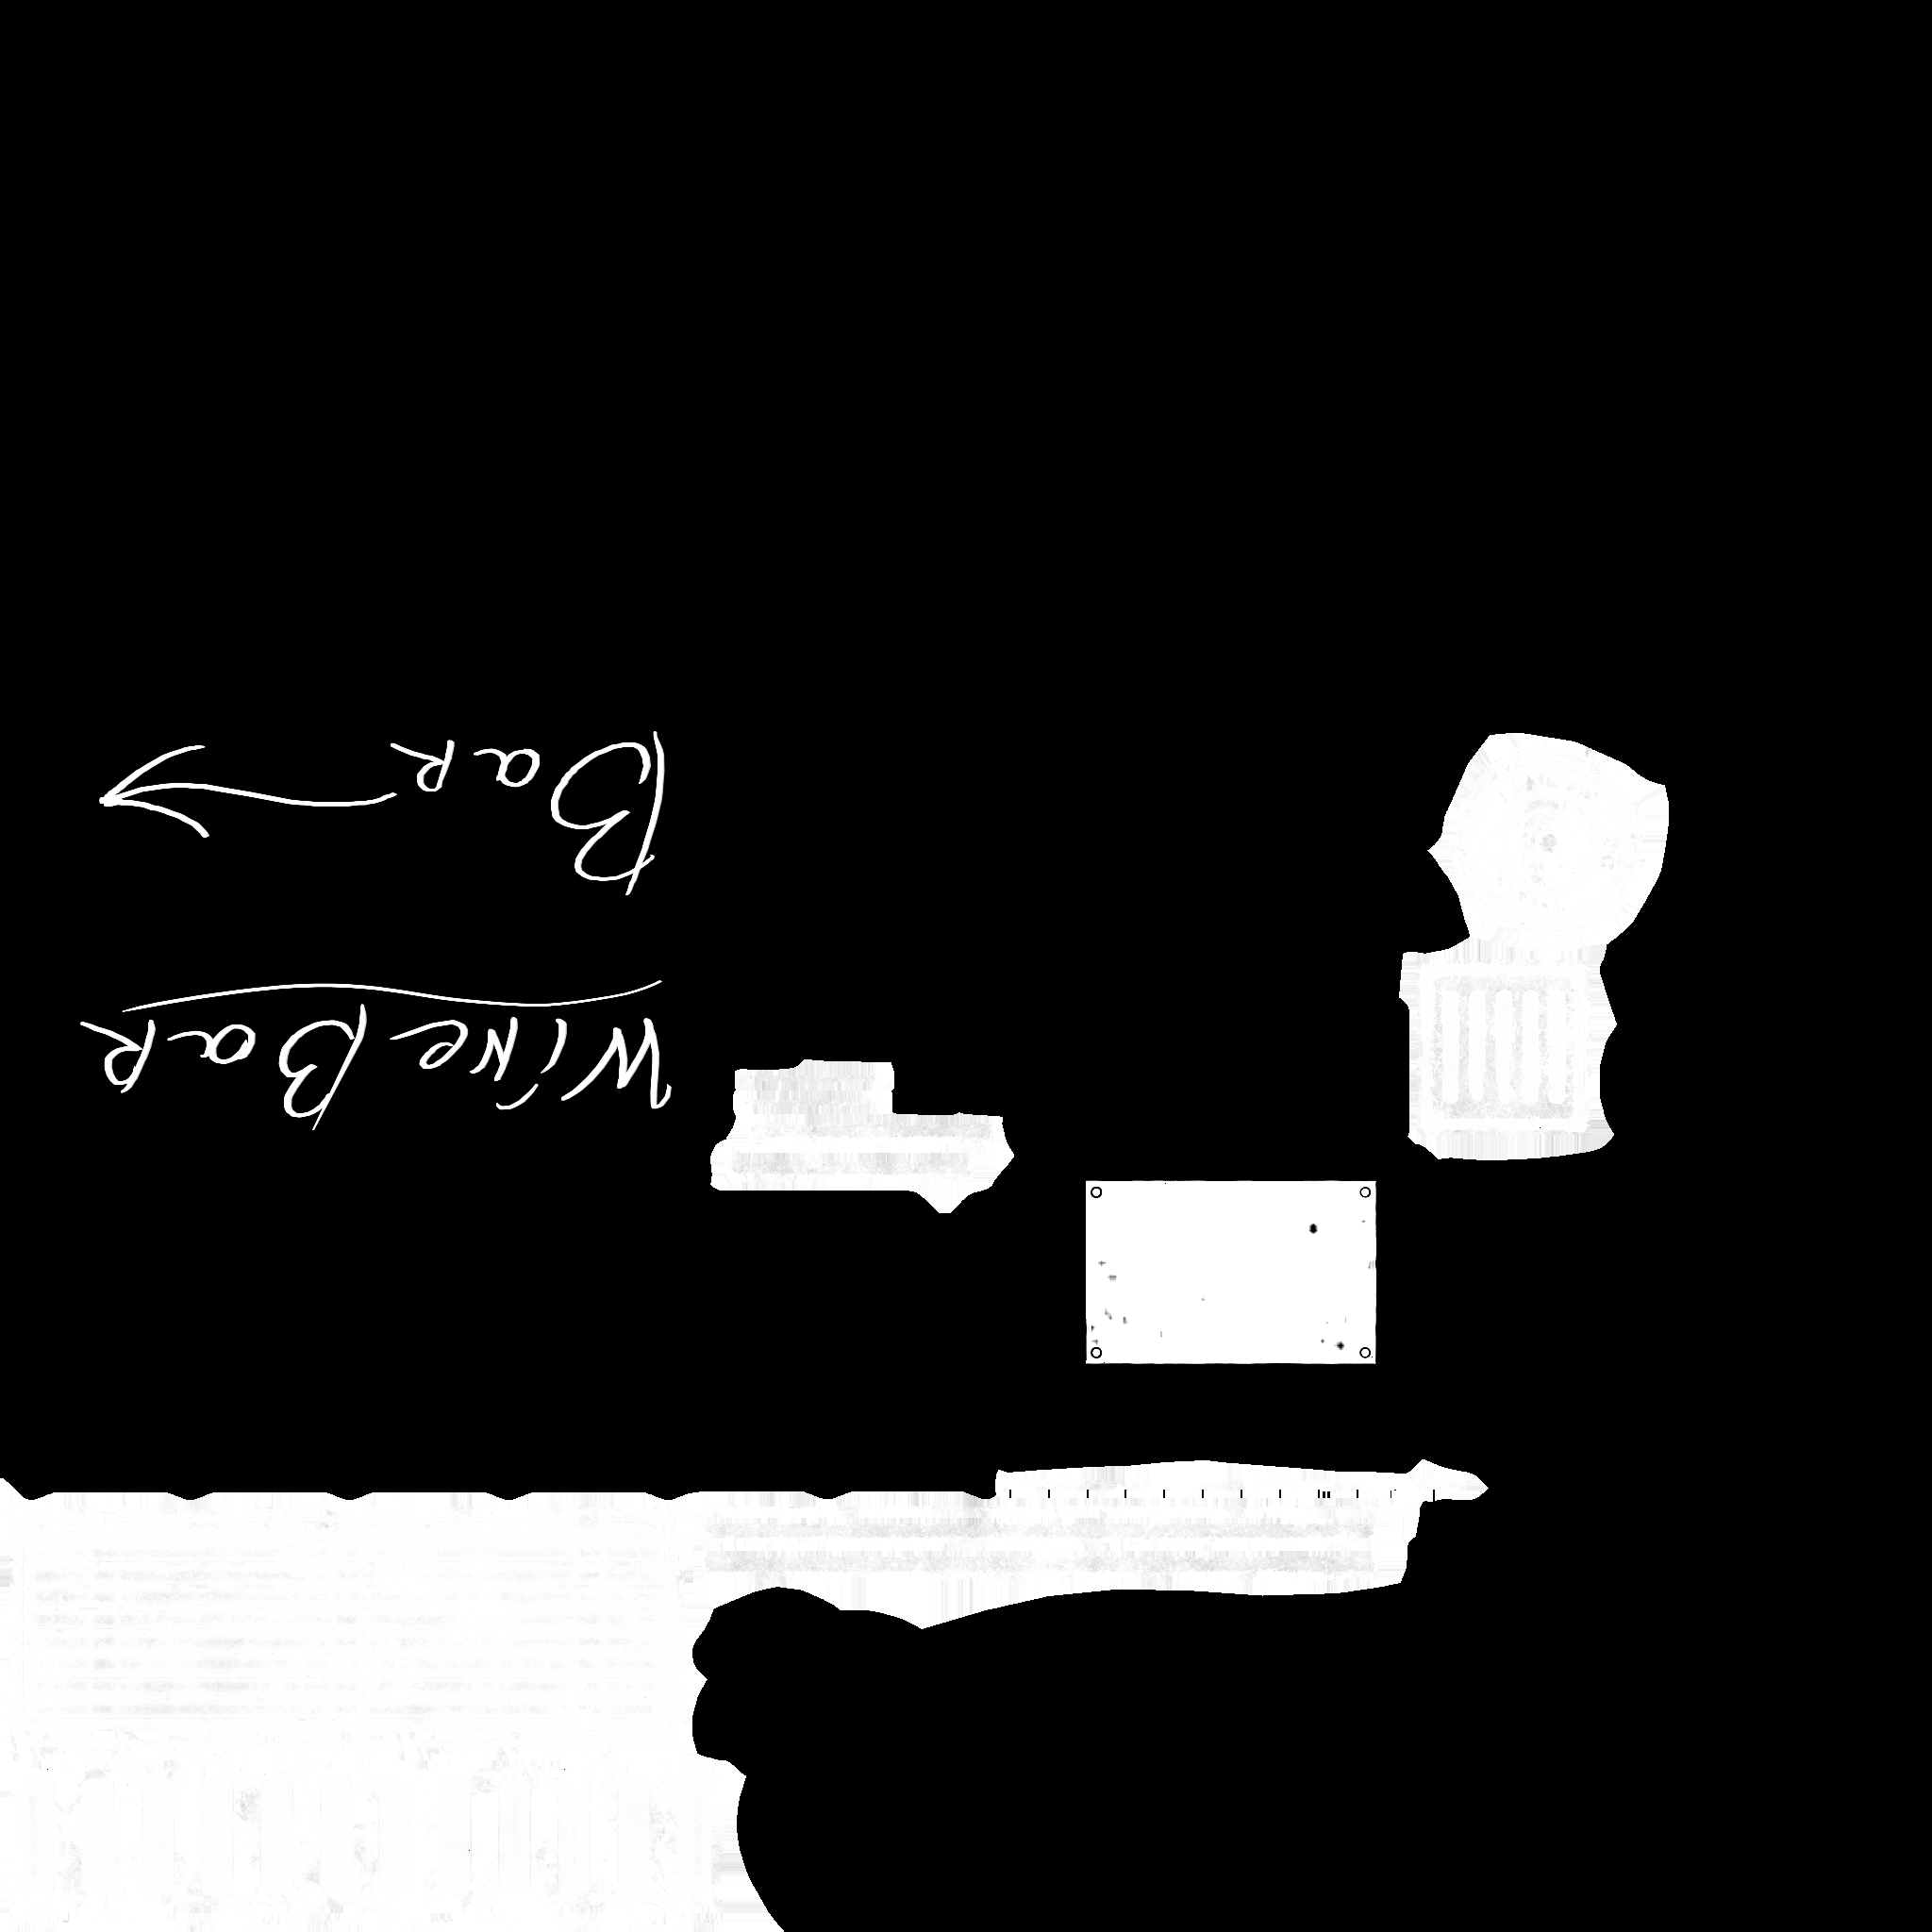 WiNe BaR
BaR